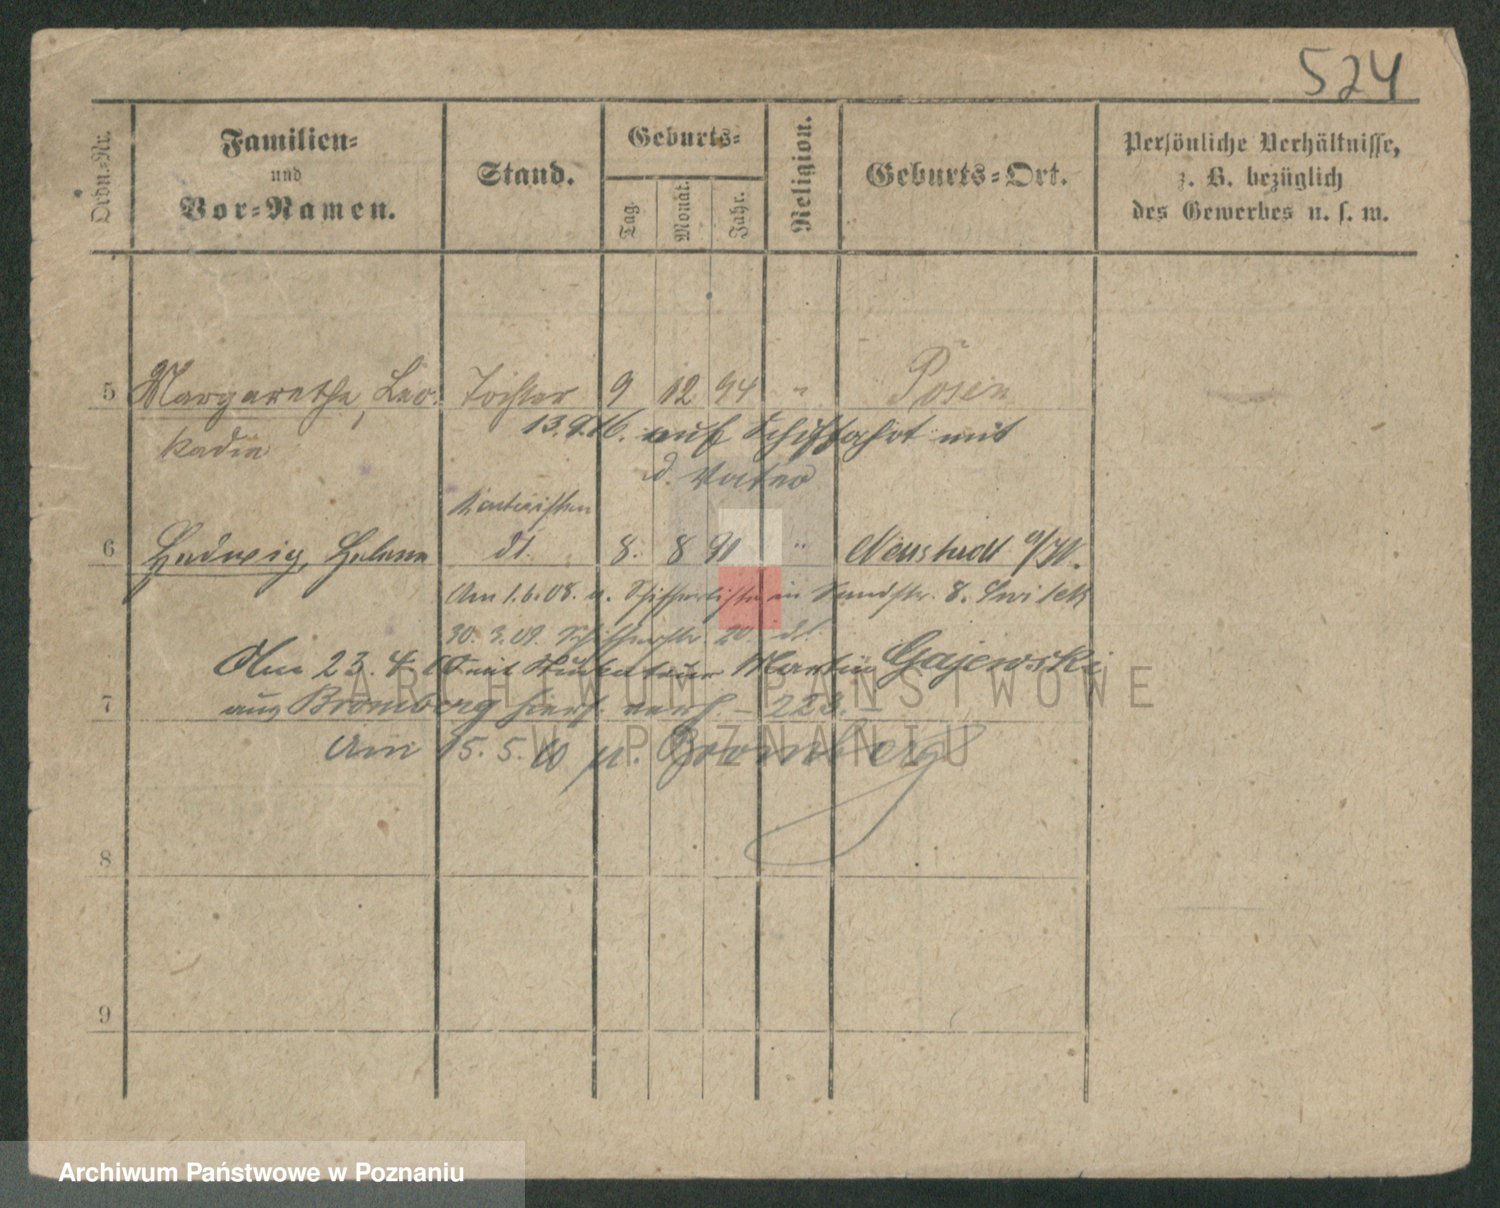 524
Ordn.-Nr.
Familien-
und
Vor-Namen.
Stand.
Geburts-
Tag.
Monat.
Jahr.
Religion.
Geburts-Ort.
Persönliche Verhältnisse,
z. B. bezüglich
des Gewerbes u. s. w.
5 Margarethe, Leo- Tochter 9 12 94 " Posen
kadia 13.9.16. auf Schiffahrt mit
d. Vater
6 Hedwig, Helene dt. 8. 8 91 " Neustadt a/W.
Am 1.6.08. in
30. 3. 09. 20 dt.
Am 23. 4. mit Martin Gajewski
7 aus Bromberg hier verh. – 223. –
Am 15. 5. 10 n. Bromberg
8
9
ARCHIWUM PAŃSTWOWE
W POZNANIU
Archiwum Państwowe w Poznaniu